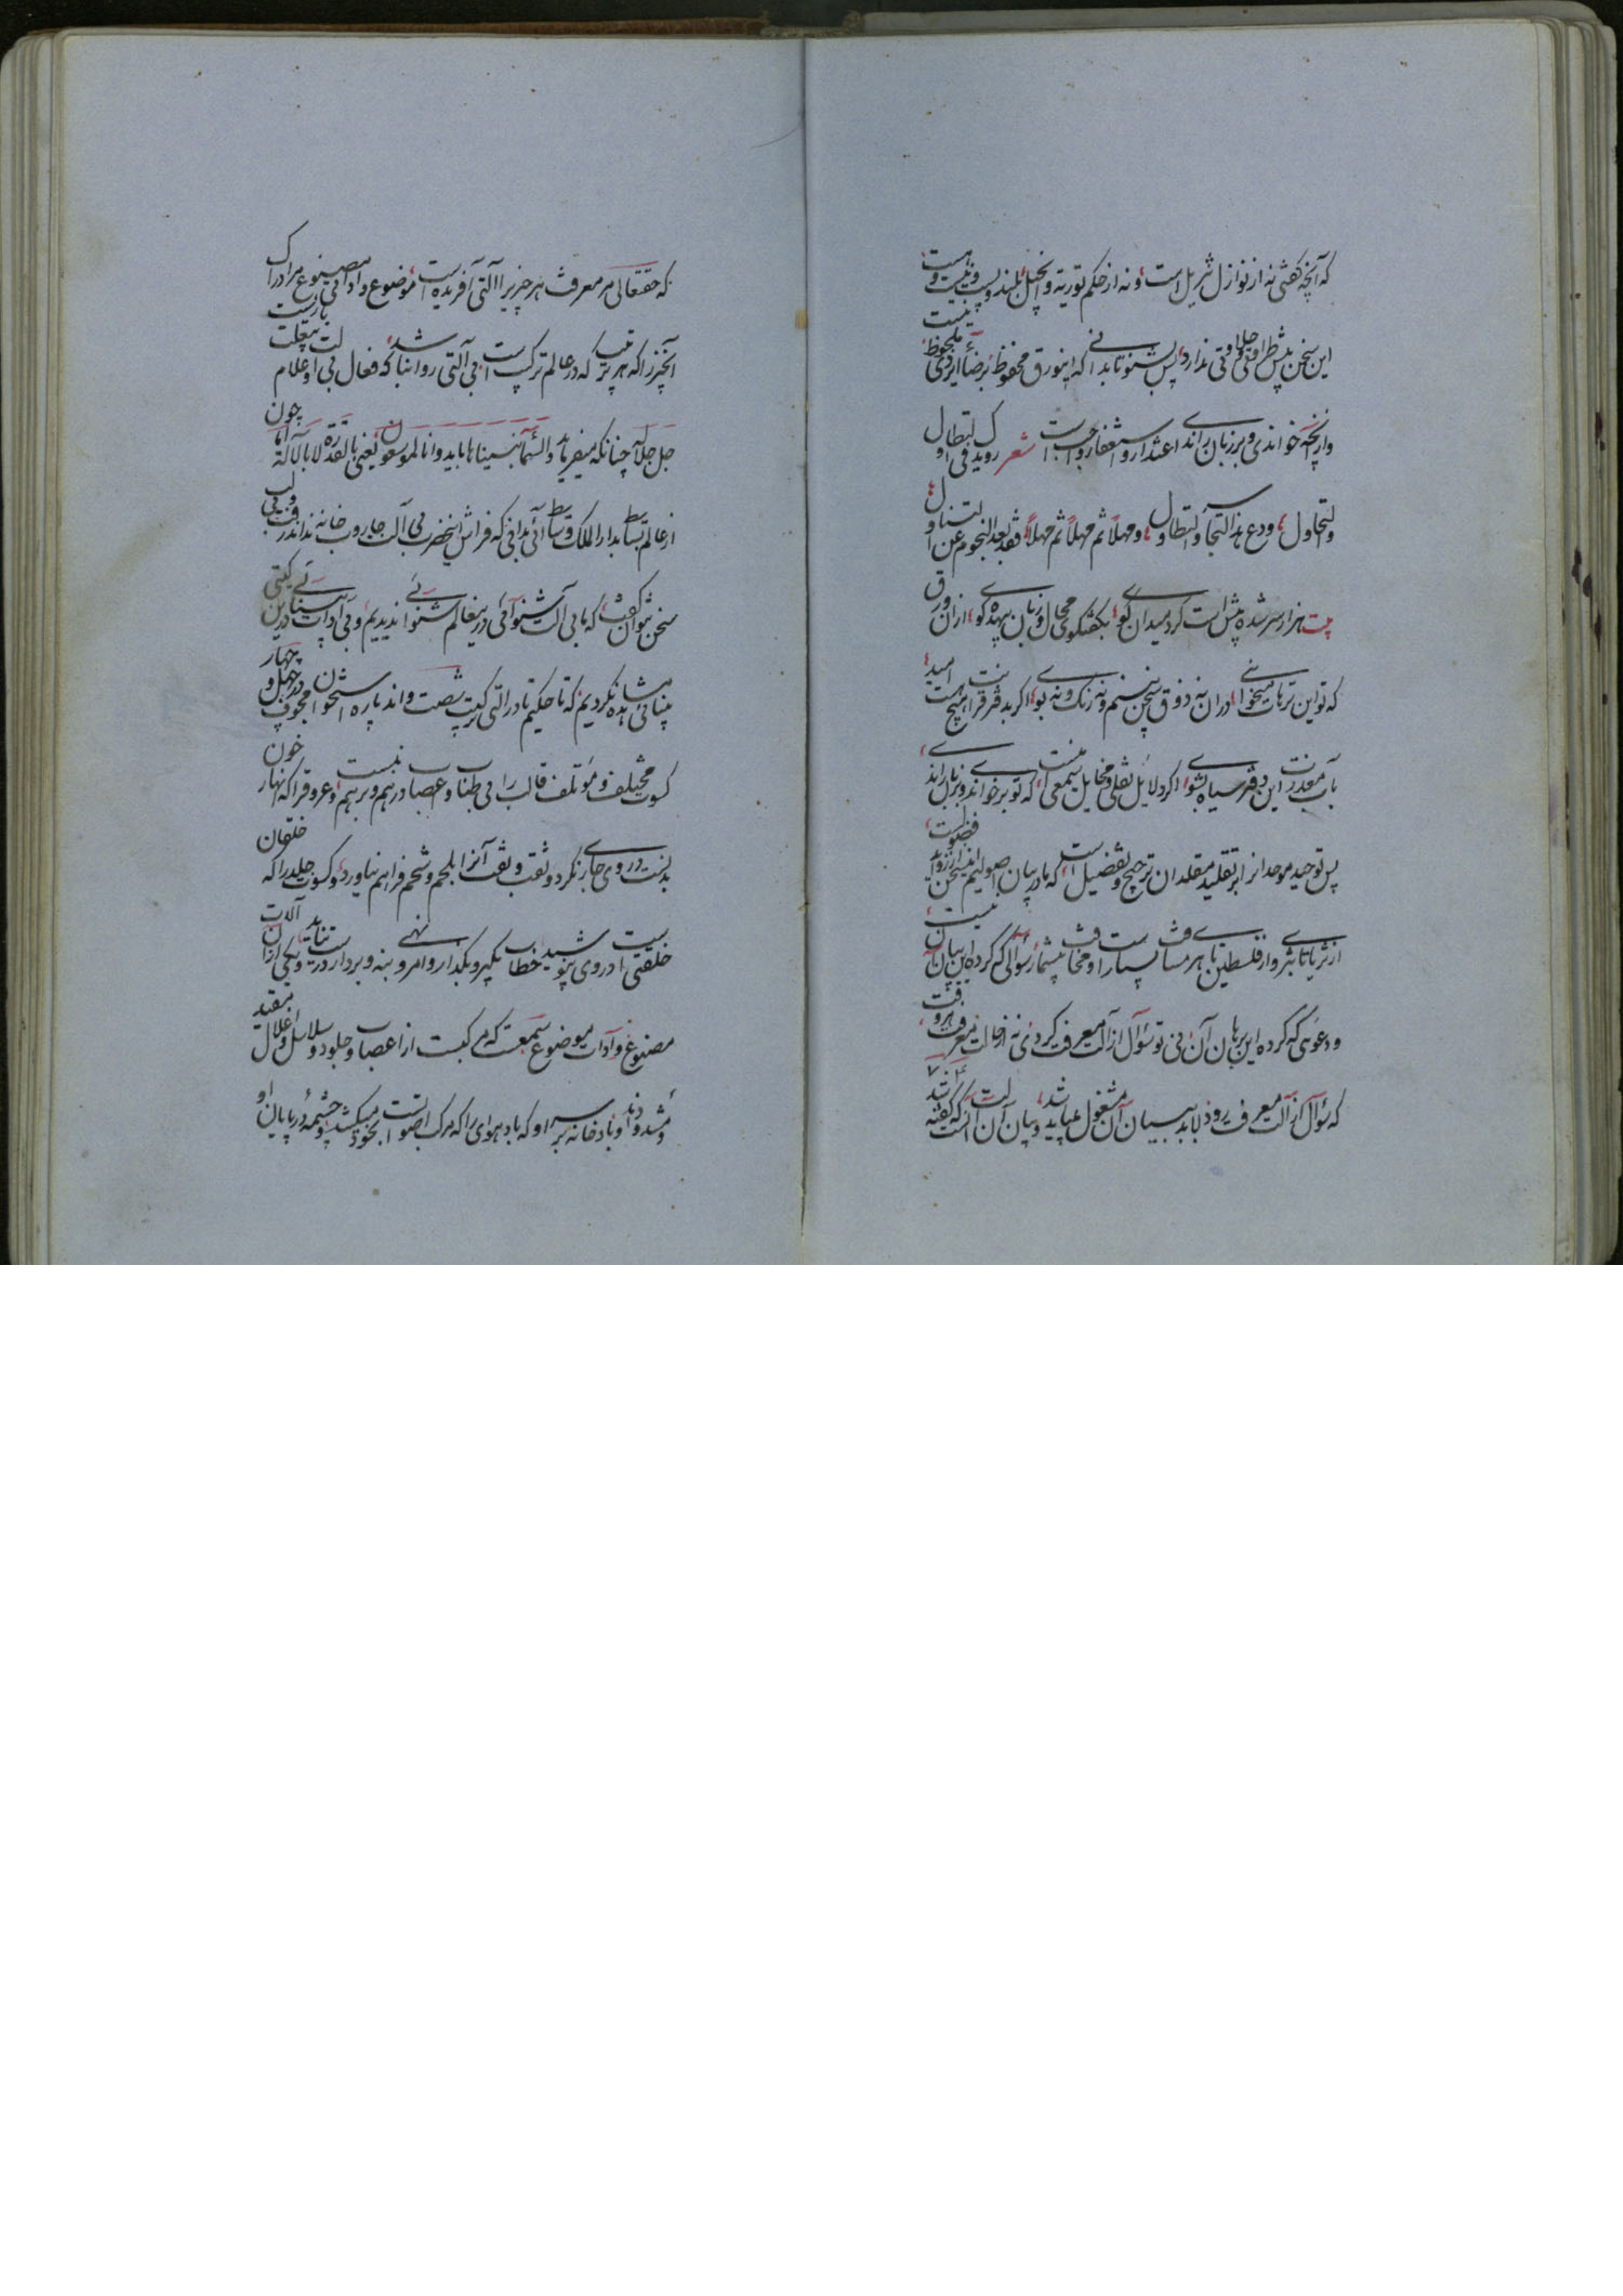 که آنچه گفتی نه از نوازل تنزیل است و نه از حکم توریة و انجیل بلند و پست و نیست و هست
این سخن بیش طراوتی و حلاوتی ندارد پس بشنو تا بدانی که اینورق محفوظ برضای ایزدی ملحوظ نیست
و ازینچه خواندی و بر زبان راندی اعتذار و استغفار واجبست شعر رویدک فی الابطال و
والتحاول ودع هذا التجاسر والتطاول ومهلاً ثم مهلاً ثم مهلاً فقد بعد النجوم عن التناول
بیت هزار سر شده بیش است گرد میدان گوی بگفتگوی محال و زبان بیهده گوی از آن ورق
که تو این ترهات میخوانی در آن نه ذوق سخن بینم و نه رنگ و نه بوی اگر بدفتر قرات هیچ امید
بآب معذرت این دفتر سیاه بشوی اگر دلائل نقلی و مخایل سمعی اینست که تو بر خواندی و بر زبان راندی
پس توحید موحدانرا بر تقلید مقلدان ترجیح و تفضیل است که ما در بیان اصولیم این سخن از زواید فضولست
از ثریا تا بثری و از فلسطین تا بهری مسافت بسیارست و مخافت بیشمار سؤالی که کرده این بیان آن نیست
و دعوی که کرده این برهان آن نی تو سؤال از آلت معرفت کردی نه از حالت معرفت هر وقت
که سؤال از آلت معرفت رود لابد ببیان آن مشغول میباید شد و بیان آن آنست که گفته اند
که حقتعالی مر معرفت هر چیز را آلتی آفریده است موضوع و اداتی مصنوع مر ادراک
آنچیز را که هر ترتیب که در عالم ترکیب است بی آلتی روا نباشد که فعال بی اوعلام
جل جلاله چنانکه میفرماید والسماء بنیناها باید وانا لموسعون یعنی بالقدرة لا بالآلة اما چون
از عالم بساط بدار الملک وسایط آئی بدانی که فراش این حضرت بی آلت جاروب خانه نداند رفت و بی
سخن نتوان گفت که ما بی آلت شنوائی در ینعالم شنوائی ندیدیم و بی ادات بینائی در ین گیتی
بینائی مشاهده نکردیم که تا حکیم قادر آلتی ترکیب شصت و اند پاره استخوان مجوف در چهل و چهار
کسوت مختلف و مؤتلف قالب را بی طناب و اعصاب درهم و برهم نبست و عروق را که انهار خون
بدنست در وی جاری نکرد و ثقب و نقب آنرا بلحم و شحم فراهم نیاورد و کسوت جلد را که خلقان
خلقتیست در وی نپوشید خطاب بگیر و بگذار و امر و نهی بنه و بردار در وی نیامد و یکی از آن آلات
مصنوع و آدات موضوع سمعست که مرکبست از اعصاب و جلود و سلاسل و اغلال مقید
و مشدود و بادخانه بر سر او که باد هوای را که مرکب اصواتست بخود میکشد و چشمه در پایان او